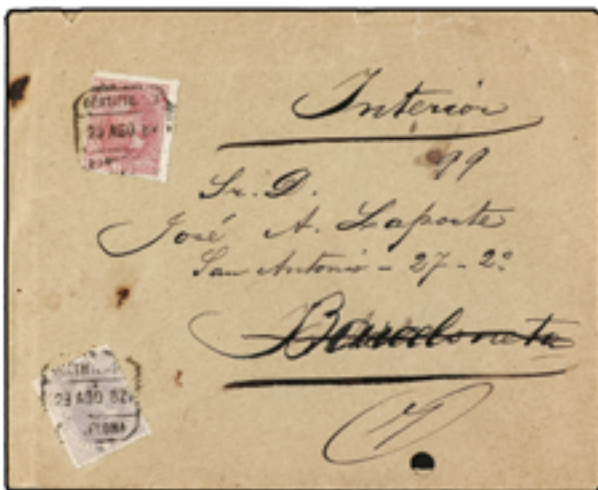 Interior
99
Sr. D.
José A. Laporte
San Antonio - 27 - 2º
Barceloneta
29 AGO 82
29 AGO 82